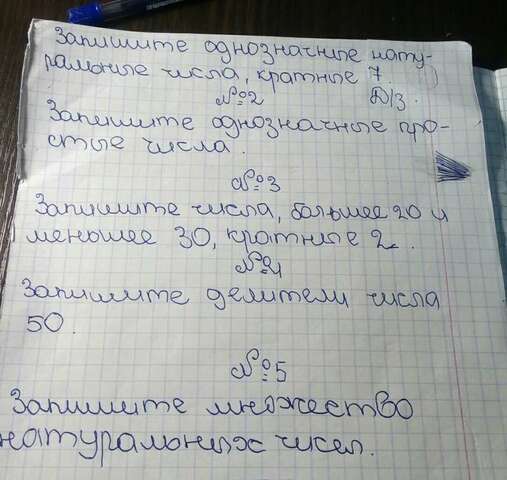 Запишите однозначные нату-
ральные числа, кратные 7.
№2 Д/З.
Запешите однозначные про-
стые числа.
№3
Запишите числа, большее 20 и
меньшее 30, кратные 2.
№4
Запишите делители числа
50.
№5
Запишите множество
натуральных чисел.